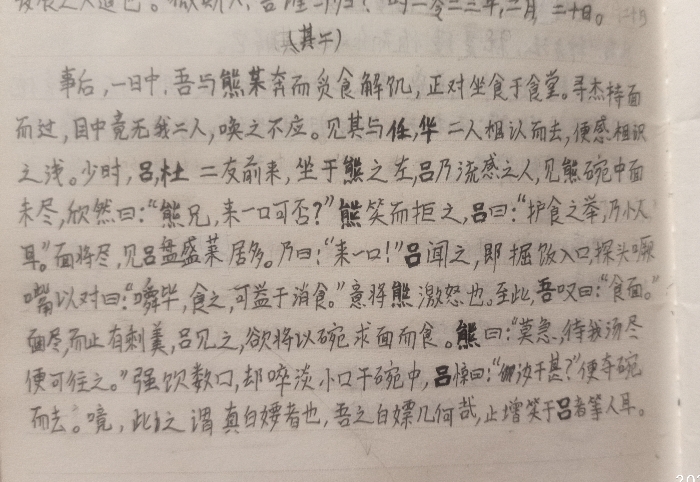 时一零二三年,二月,二十日。
(其二)
事后,一日中,吾与熊某奔而负食解饥,正对坐食于食堂。寻杰持面
而过,目中竟无我二人,唤之不应。见其与任,华二人相认而去,便感相识
之浅。少时,吕,杜二友前来,坐于熊之左,吕乃流感之人,见熊碗中面
未尽,欣然曰:“熊兄,来一口可否?”熊笑而拒之,吕曰:“护食之举,乃小人
耳。”面将尽,见吕盘盛菜居多。乃曰:“来一口!”吕闻之,即掘饭入口,探头噘
嘴以对曰:“嚼毕,食之,可益于消食。”意将熊激怒也。至此,吾叹曰:“食面。”
面尽,而止有剩羹,吕见之,欲将以碗求面而食。熊曰:“莫急,待我汤尽
便可往之。”强饮数口,却啐淡小口于碗中,吕悚曰:“汝干甚?”便夺碗
而去。噫,此之谓真白嫖者也,吾之白嫖几何哉,止增笑于吕者等人耳。